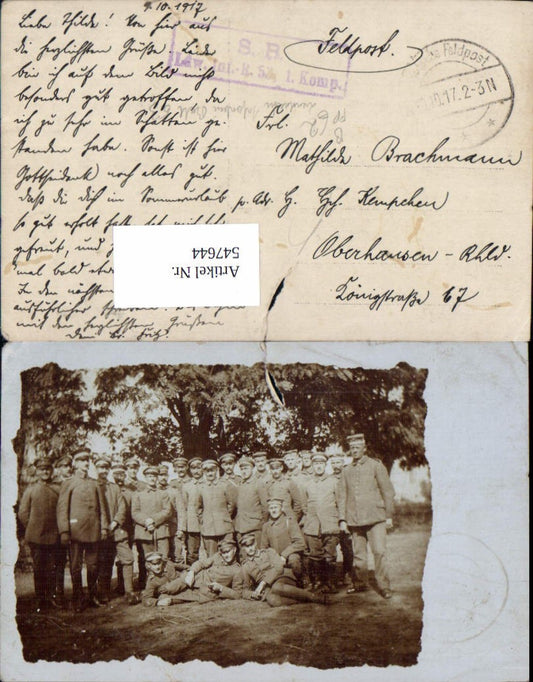 9.10.1917
Liebe Thilde! Von hier aus
die herzlichsten Grüße. Leider
bin ich auf dem Bild nicht
besonders gut getroffen da
ich zu sehr im Schatten ge-
standen habe. Sonst ist hier
Gottseidank noch alles gut.
daß du dich im Sommerurlaub
so gut erholt
gefreut, und
mal bald
In den nächsten
ausführlicher
mit den herzlichsten Grüßen
Dein Br. Fritz
S. B.
Ldw. Inf.-R. 53, 1. Komp.
Feldpost.
Feldpost
.10.17. 2-3N
Frl.
Mathilde Brachmann
p. Adr. H. Hch. Kempchen
Oberhausen - Rhld.
Königstraße 67
Artikel Nr.
547644